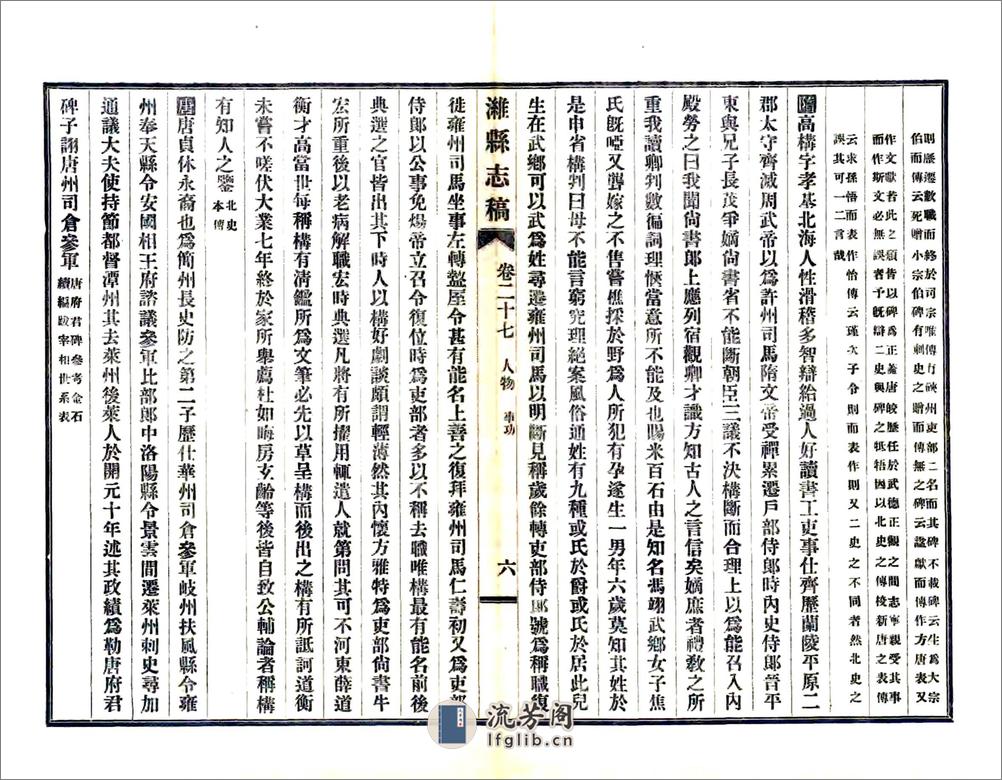 則歷遷數職而終於司宗唯傳有硤州吏部二名而其碑不載碑云生爲大宗
伯而傳云死贈小宗伯碑有刺史之贈而傳無之碑云諡獻而傳作方唐表又
作文獻若此之類皆以碑爲正蓋唐皎歷任於武德正觀之間志寧親受其事
而作斯文必無誤者予旣辯二史與碑之牴牾因以北史之傳校新唐之表傳
云求孫悟而表作怡傳云瑾次子令則而表作則又二史之不同者然北史之
誤其可一二言哉
隋高構字孝基北海人性滑稽多智辯給過人好讀書工吏事仕齊歷蘭陵平原二
郡太守齊滅周武帝以爲許州司馬隋文帝受禪累遷戶部侍郞時內史侍郞晉平
東與兄子長茂爭嫡尙書省不能斷朝臣三議不決構斷而合理上以爲能召入內
殿勞之曰我聞尙書郞上應列宿觀卿才識方知古人之言信矣嫡庶者禮敎之所
重我讀卿判數徧詞理愜當意所不能及也賜米百石由是知名馮翊武鄉女子焦
氏旣啞又聾嫁之不售嘗樵採於野爲人所犯有孕遂生一男年六歲莫知其姓於
是申省構判曰母不能言窮究理絕案風俗通姓有九種或氏於爵或氏於居此兒
生在武鄉可以武爲姓尋遷雍州司馬以明斷見稱歲餘轉吏部侍郞號爲稱職復
濰縣志稿
卷二十七
人物 事功
六
徙雍州司馬坐事左轉盩厔令甚有能名上善之復拜雍州司馬仁壽初又爲吏部
侍郞以公事免煬帝立召令復位時爲吏部者多以不稱去職唯構最有能名前後
典選之官皆出其下時人以構好劇談頗謂輕薄然其內懷方雅特爲吏部尙書牛
宏所重後以老病解職宏時典選凡將有所擢用輒遣人就第問其可不河東薛道
衡才高當世每稱構有淸鑑所爲文筆必先以草呈構而後出之構有所詆訶道衡
未嘗不嗟伏大業七年終於家所舉薦杜如晦房玄齡等後皆自致公輔論者稱構
有知人之鑒北史本傳
唐唐貞休永裔也爲簡州長史防之第二子歷仕華州司倉參軍岐州扶風縣令雍
州奉天縣令安國相王府諮議參軍比部郞中洛陽縣令景雲間遷萊州刺史尋加
通議大夫使持節都督潭州其去萊州後萊人於開元十年述其政績爲勒唐府君
碑子詡唐州司倉參軍唐府君碑參考金石續編跋宰相世系表
流芳阁
lfglib.cn